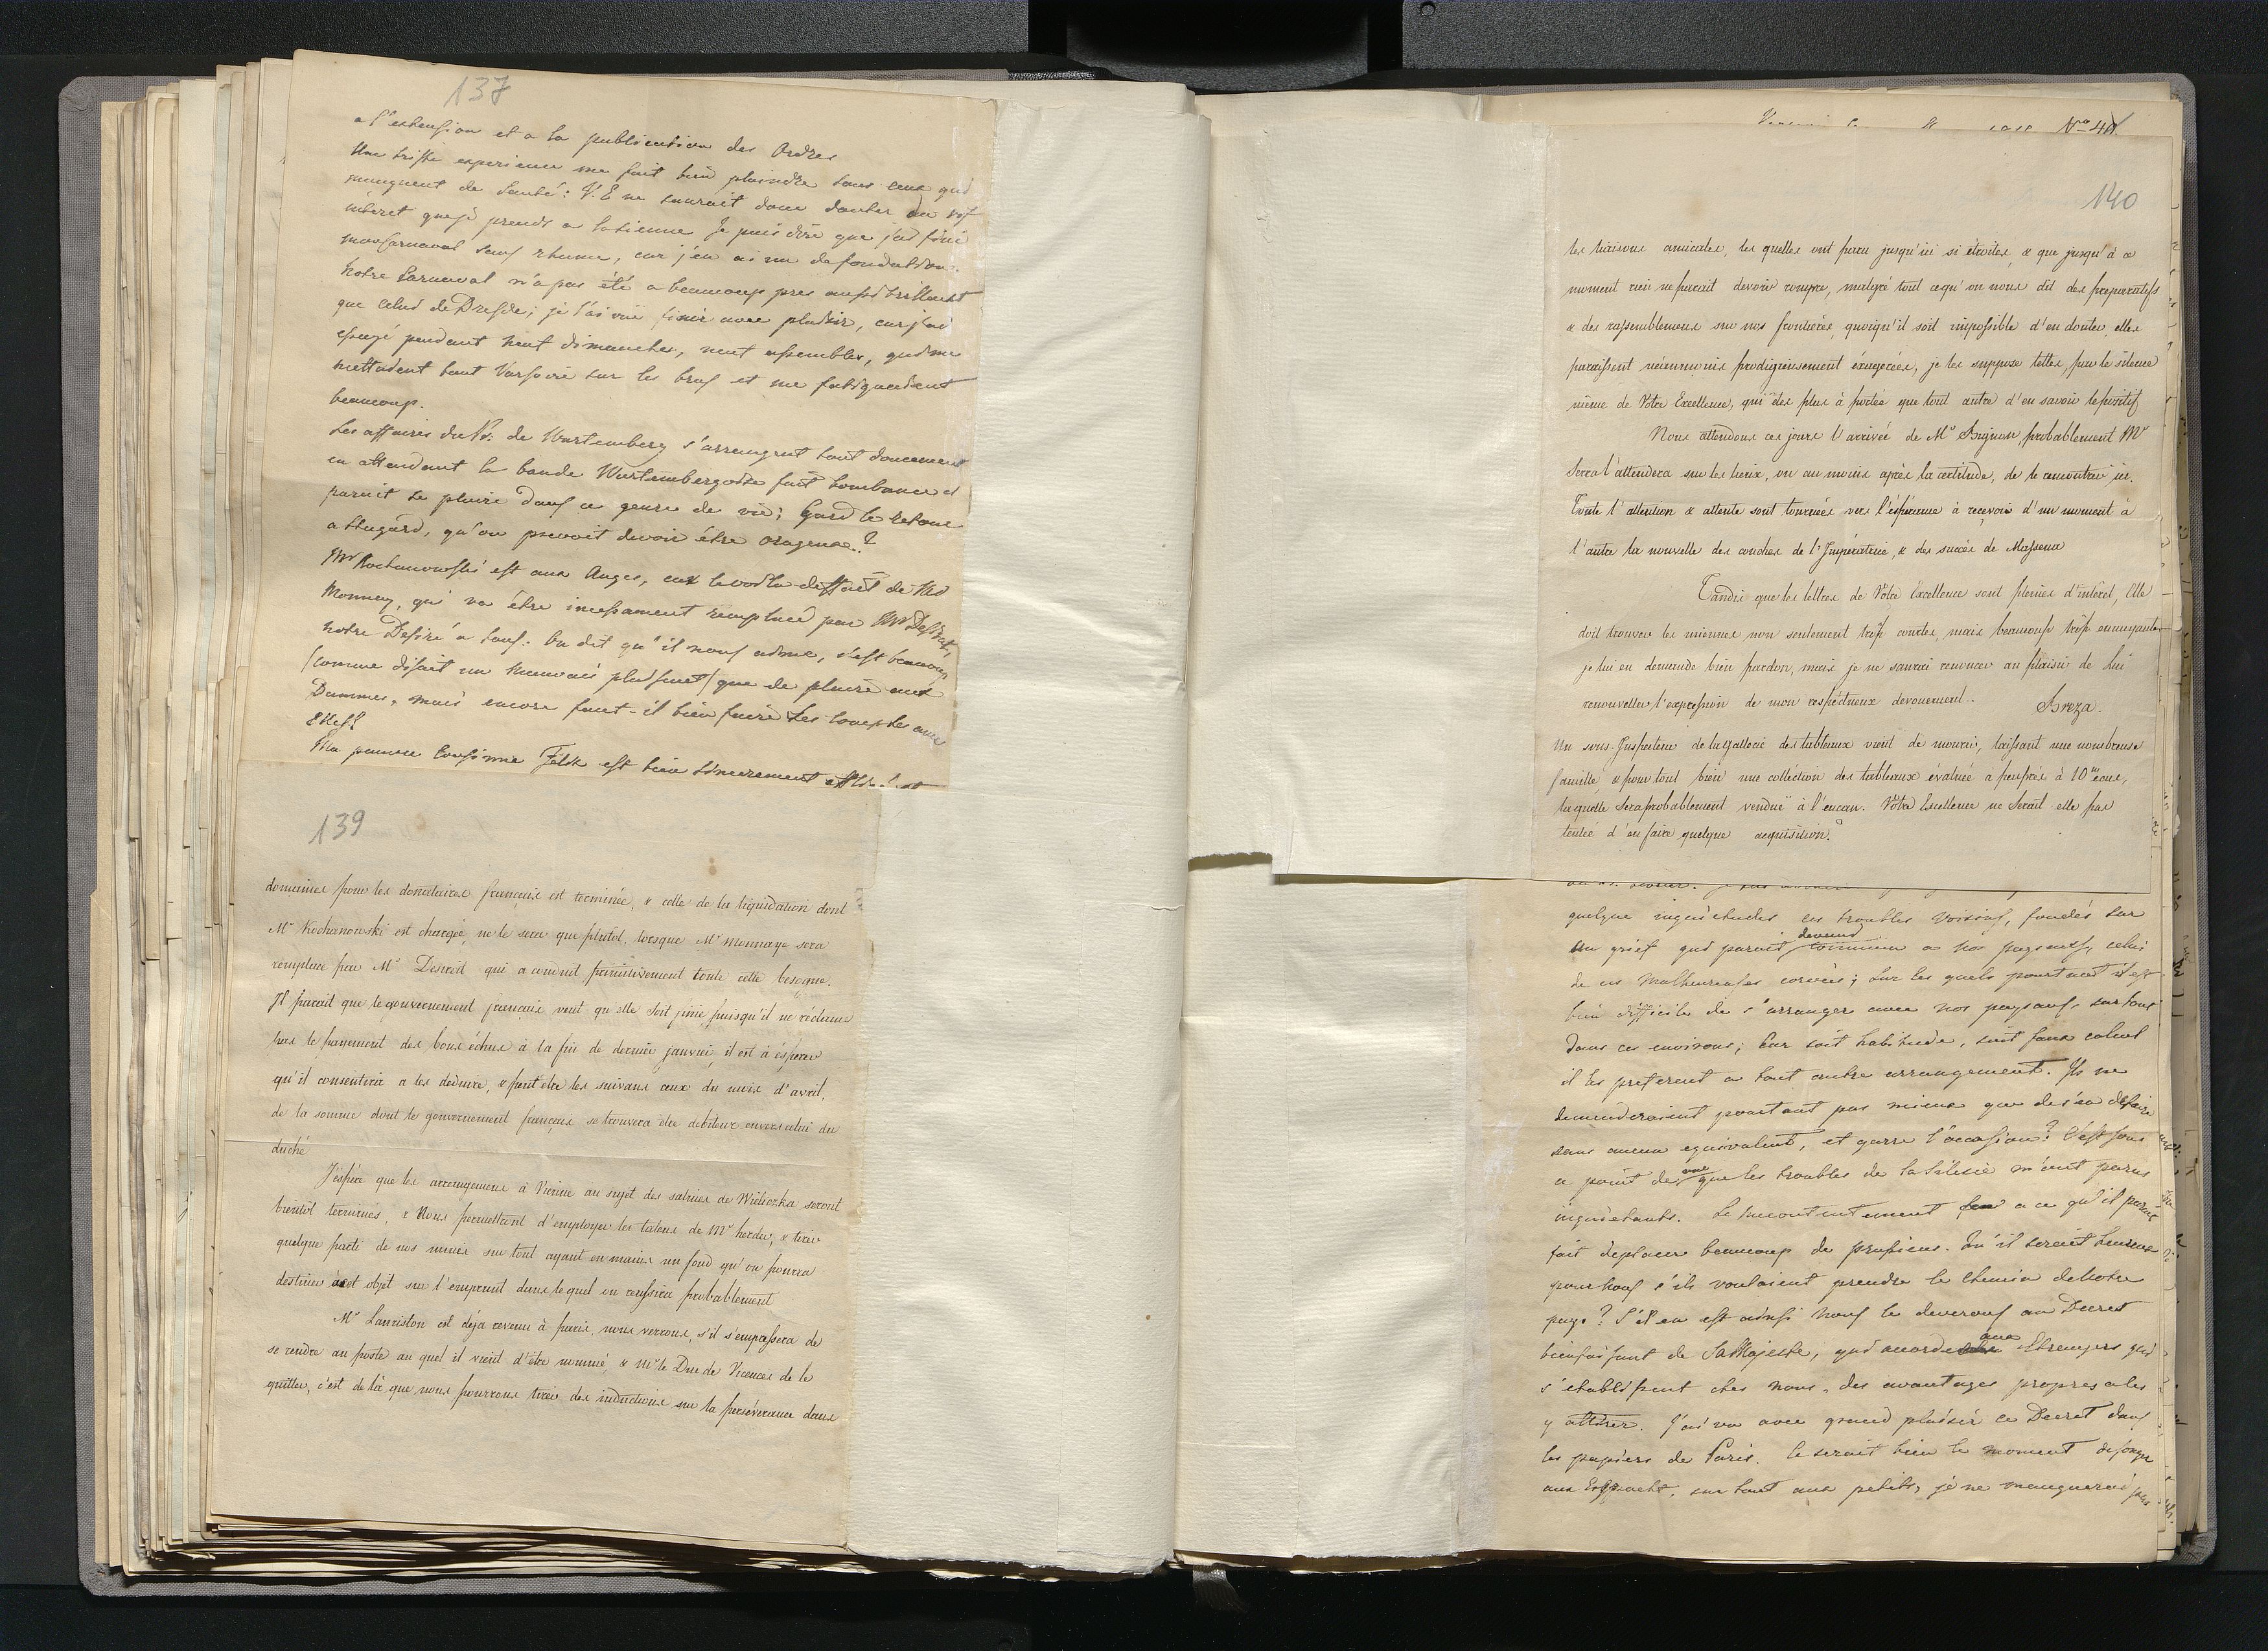 137
a l'extension et a la publication des Ordres
Une triste experience me fait bien plaindre tous ceux qui
manquent de santé: V.E ne saurait donc douter du vif
intéret que je prends a la sienne Je puis dire que j'ai fini
mon Carnaval sans rhume, car j'en ai un de fondation.
Notre Carnaval n'a pas été a beaucoup pres aussi brillant
que celui de Dresde; je l'ai vû finir avec plaisir, car j'ai
essuyé pendant huit dimanches, huit assemblés, qui me
mettaient tout Varsovie sur les bras et me fatiguaient
beaucoup.
Les affaires du Pr: de Wurtemberg s'arrangent tout doucement
en attendant la bande Wurtembergoise fait bombance et
parait se plaire dans ce genre de vie; Gard le retour
a Stugard, qu'on prevoit devoir être orageux?
Mr Kochanowski est aux Anges, le voila deffait de Mr
Monnay, qui va être incessament remplacé par Mr Desirat,
notre Desiré a tous: On dit qu'il nous aime, c'est beaucoup
(comme disait un mauvais plaisant) que de plaire aux
Dammes, mais encore faut-il bien faire les comptes avec
Elles?
Ma pauvre Cousinne est bien sincerement
139
domaines pour les donataires français est terminée, & celle de la liquidation dont
Mr Kochanowski est chargée, ne le sera que plutot, lorsque Mr Monnaye sera
remplacé par Mr Desirat qui a conduit primitivement toute cette besogne.
Il parait que le gouvernement français veut qu'elle soit finie puisqu'il ne réclame
pas le payement des bons échus à la fin de dernier janvier, il est à éspérer
qu'il consentira a les deduire, & peut etre les suivans ceux du mois d'avril,
de la somme dont le gouvernement français se trouvera etre debiteur envers celui du
duché
J'éspère que les arrangemens à Vienne au sujet des salines de Wieliczka seront
bientôt terminés, & Nous permettront d'employer les talens de Mr herder, & tirer
quelque parti de nos mines sur tout ayant en mains un fond qu'on pourra
destiner à cet objet sur l'emprunt dans lequel on reussira probablement
Mr Lauriston est déja revenu à paris, nous verrons, s'il s'empressera de
se rendre au poste au quel il vient d'être nommé, & Mr le Duc de Vicence de le
quitter, c'est de là que nous pourrons tirer des inductions sur la persévérance dans
No 41
140
les liaisons amicales, les quelles ont paru jusqu'ici si étroites & que jusqu'à ce
moment rien ne parait devoir rompre, malgré tout ce qu'on nous dit des préparatifs
& des rassemblemens sur nos frontières, quoiqu'il soit impossible d'en douter, elles
paraissent néanmoins prodigieusement éxagerées, je les suppose telles, par le silence
même de Votre Excellence, qui êtes plus à portée que tout autre d'en savoir le positif
Nous attendons ces jours l'arrivée de Mr Bignon, probablement Mr
Serra l'attendera sur les lieux, ou au moins après la certitude, de le rencontrer ici.
Toute l'attention & attente sont tournées vers l'éspérance à recevoir d'un moment à
l'autre la nouvelle des couches de l'Impératrice, & des succès de Massena
Tandis que les lettres de Votre Excellence sont pleines d'intéret, Elle
doit trouver les miennes non seulement trop courtes, mais beaucoup trop ennuyantes
je lui en demande bien pardon, mais je ne saurai renoncer au plaisir de lui
renouveller l'expression de mon respectueux devouement.
Breza.
Un sous-Inspecteur de la gallerie des tableaux vient de mourir, laissant une nombreuse
famille, & pour tout bien une colléction des tableaux évaluée a peuprès à 10m écus,
laquelle sera probablement vendue à l'encan. Votre Excellence ne serait elle pas
tentée d'en faire quelque acquisition?
quelque inquietudes ces troubles voisins, fondés sur
un grief qui parait devenu commun a nos paysans, celui
de ces malheureuses corvées; sur les quels pourtant il est
bien difficile de s'arranger avec nos paysans, surtout
dans ces environs; Car soit habitude, soit faux calcul
il les preferent a tout autre arrangement. Ils ne
demanderaient pourtant pas mieux que de s'en defaire
sans aucun equivalent, et garre l'occasion? C'est sous
ce point de vue que les troubles de la Silesie m'ont parus
inquietants. Le mecontentement a ce qu'il parait
fait deplacer beaucoup de prussiens. Qu'il serait heureux
pour nous s'ils voulaient prendre le chemin de notre
pays? S'il en est ainsi nous le deverons au Decret
bienfaisant de Sa Majesté, qui accorde aux Etrangers qui
s'etablissent ches nous, des avantages propres a les
y attirer. J'ai vu avec grand plaisir ce Decret dans
les papiers de Paris. Ce serait bien le moment de songer
aux sur tout aux petits, je ne manquerai pas